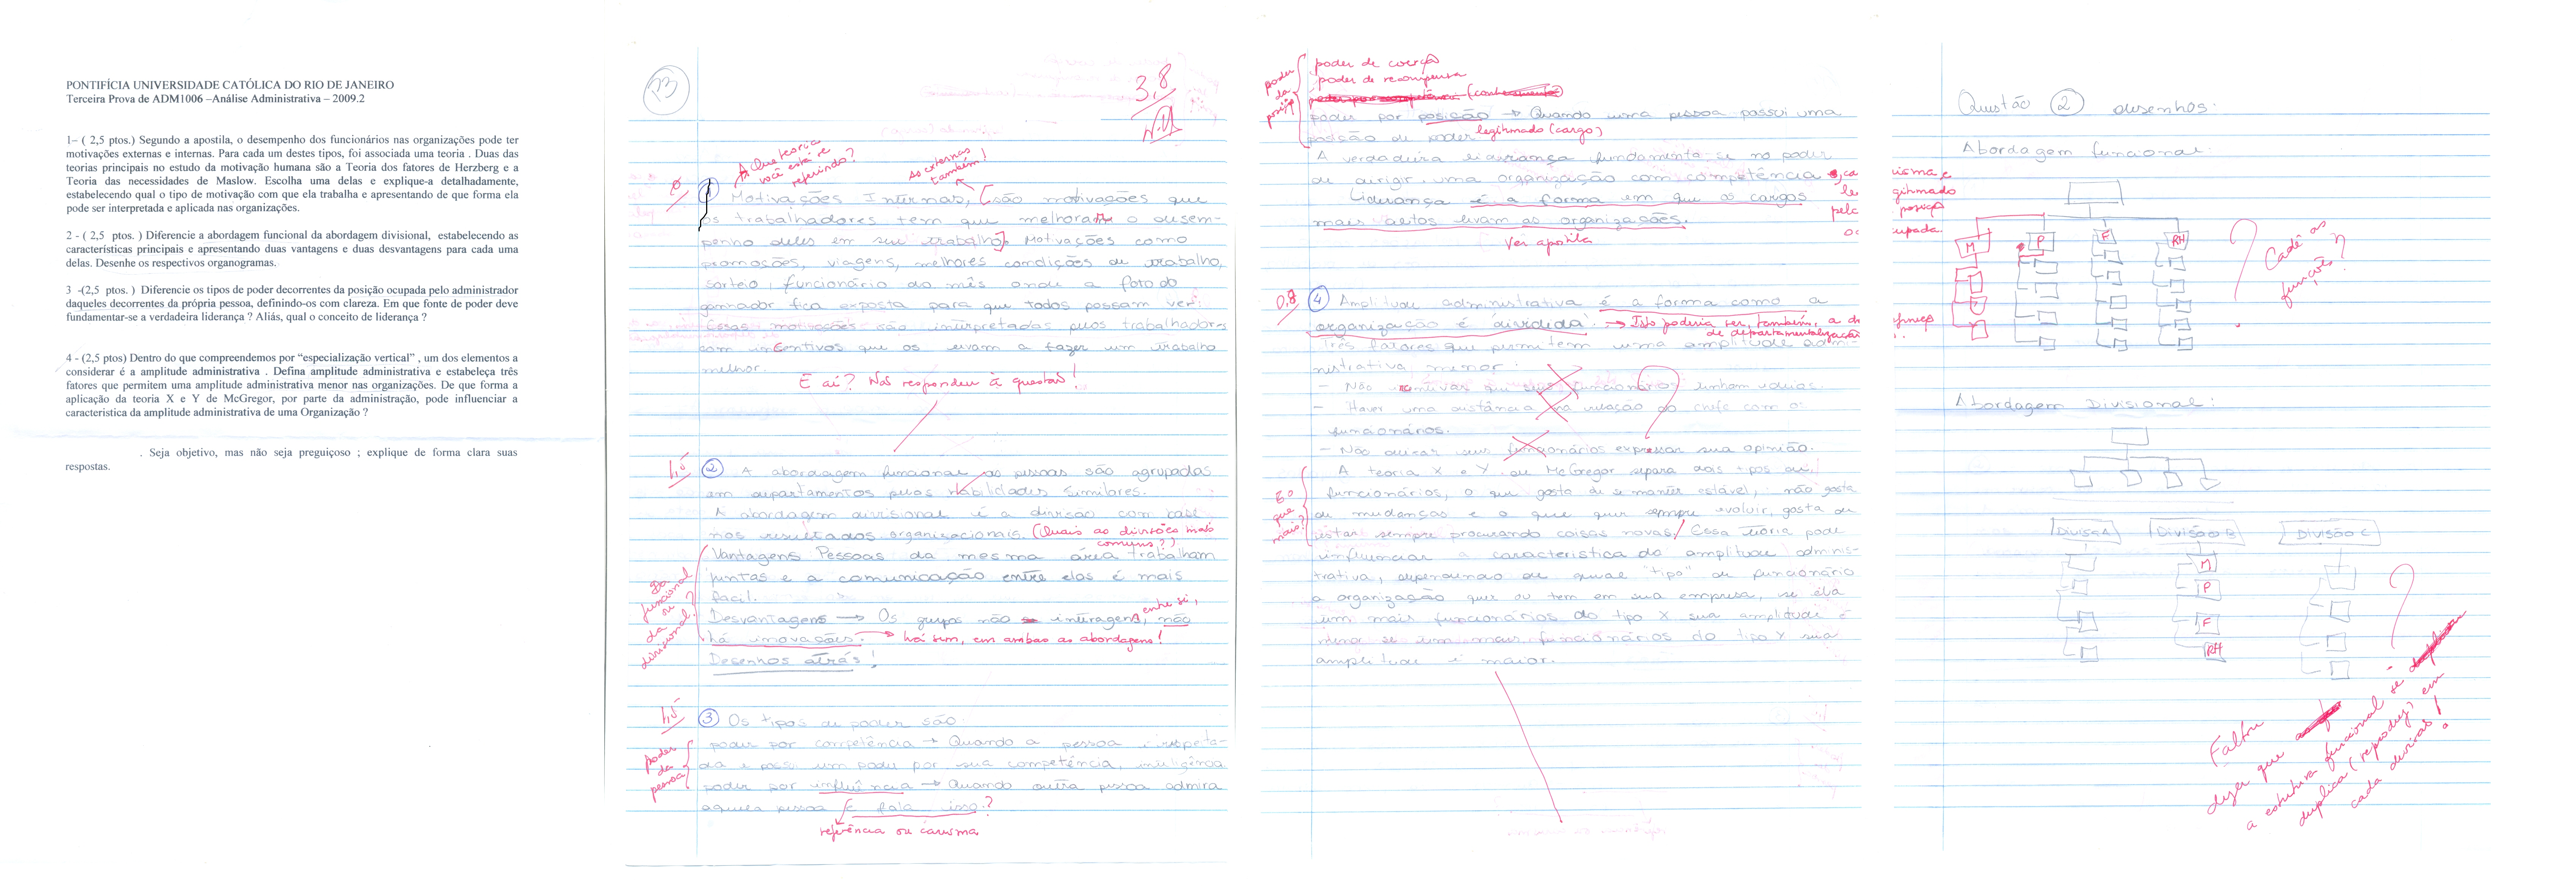 PONTIFÍCIA UNIVERSIDADE CATÓLICA DO RIO DE JANEIRO
Terceira Prova de ADM1006 –Análise Administrativa – 2009.2
1– ( 2,5 ptos.) Segundo a apostila, o desempenho dos funcionários nas organizações pode ter
motivações externas e internas. Para cada um destes tipos, foi associada uma teoria . Duas das
teorias principais no estudo da motivação humana são a Teoria dos fatores de Herzberg e a
Teoria das necessidades de Maslow. Escolha uma delas e explique-a detalhadamente,
estabelecendo qual o tipo de motivação com que ela trabalha e apresentando de que forma ela
pode ser interpretada e aplicada nas organizações.
2 - ( 2,5 ptos. ) Diferencie a abordagem funcional da abordagem divisional, estabelecendo as
características principais e apresentando duas vantagens e duas desvantagens para cada uma
delas. Desenhe os respectivos organogramas.
3 -(2,5 ptos. ) Diferencie os tipos de poder decorrentes da posição ocupada pelo administrador
daqueles decorrentes da própria pessoa, definindo-os com clareza. Em que fonte de poder deve
fundamentar-se a verdadeira liderança ? Aliás, qual o conceito de liderança ?
4 - (2,5 ptos) Dentro do que compreendemos por “especialização vertical” , um dos elementos a
considerar é a amplitude administrativa . Defina amplitude administrativa e estabeleça três
fatores que permitem uma amplitude administrativa menor nas organizações. De que forma a
aplicação da teoria X e Y de McGregor, por parte da administração, pode influenciar a
caracteristica da amplitude administrativa de uma Organização ?
. Seja objetivo, mas não seja preguiçoso ; explique de forma clara suas
respostas.
P3
3,8
A que teoria
você está se
referindo?
As externas
também!
1 Motivações Internas, são motivações que
os trabalhadores tem que melhoram o desem-
penho deles em seu trabalho. Motivações como
promoções, viagens, melhores condições de trabalho,
sorteio, funcionário do mês onde a foto do
ganhador fica exposta para que todos possam ver.
Essas motivações são interpretadas pelos trabalhadores
com incentivos que os levam a fazer um trabalho
melhor.
E aí? Não respondeu à questão!
1,5
2 A abordagem funcional as pessoas são agrupadas
em departamentos pelas habilidades similares.
A abordagem divisional é a divisão com base
nos resultados organizacionais. (Quais as divisões mais
comuns?)
Vantagens Pessoas da mesma área trabalham
juntas e a comunicação entre elas é mais
fácil.
Da funcional
ou
da
divisional?
Desvantagens → Os grupos não interagem, entre si, não
há inovações. → há sim, em ambas as abordagens!
Desenhos atrás!
1,5
3 Os tipos de poder são
poder
da
pessoa
poder por competência → Quando a pessoa é respeita-
da e possi um poder por sua competência, inteligência
poder por influência → Quando outra pessoa admira
aquela pessoa e fala isso.?
referência ou carisma
poder
da
posição
poder de coerção
poder de recompensa
poder por posição → Quando uma pessoa possui uma
posição de poder legitimado (cargo)
A verdadeira liderança fundamenta-se no poder
de dirigir uma organização com competência
Liderança é a forma em que os cargos
mais altos levam as organizações.
Ver apostila
0,8
4 Amplitude administrativa é a forma como a
organização é dividida. → Isto poderia ser, também, a
de departamentalização
Três fatores que permitem uma amplitude admi-
nistrativa menor.
- Não incentivar que seus funcionários tenham ideias.
- Haver uma distância na relação do chefe com os
funcionários.
- Não deixar seus funcionários expressar sua opinião.
E o
que
mais?
A teoria X e Y de McGregor separa dois tipos de
funcionários, o que gosta de se manter estável, não gosta
de mudanças e o que quer sempre evoluir, gosta de
estar sempre procurando coisas novas. Essa teoria pode
influenciar a caracteristica da amplitude adminis-
trativa, dependendo de qual "tipo" de funcionário
a organização quer ou tem em sua empresa, se ela
tem mais funcionários do tipo X sua amplitude é
menor se tem mais funcionários do tipo Y sua
amplitude é maior.
Questão 2 desenhos:
Abordagem funcional:
M P F RH
Cadê as
funções?
Abordagem Divisional:
Divisão A Divisão B Divisão C
M
P
F
RH
Faltou
dizer que
a estrutura funcional se
duplica (reproduz) em
cada divisão!